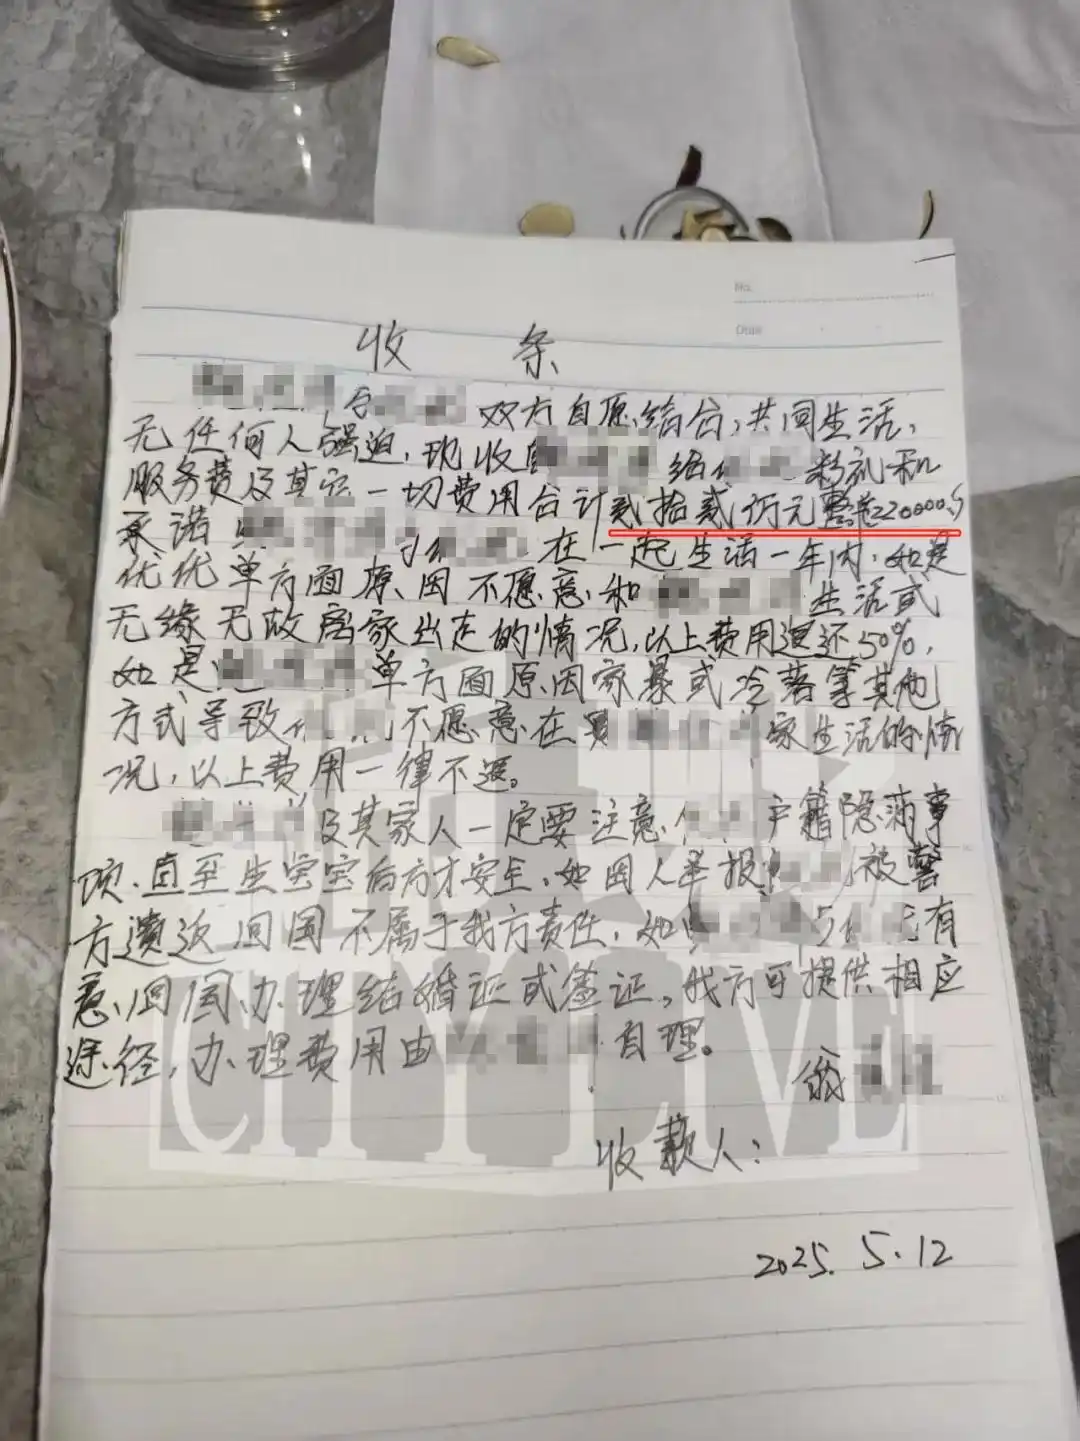 No.
Date
收 条
双方自愿结合,共同生活,
无任何人强迫,现收 给 彩礼和
服务费及其它一切费用合计贰拾贰仟元整 220000
承诺 在一起生活一年内,如是
优优单方面原因不愿意和 生活或
无缘无故离家出走的情况,以上费用退还50%,
如是 单方面原因家暴或冷落等其他
方式导致 不愿意在 家生活的情
况,以上费用一律不退。
及其家人一定要注意 户籍隐消事
项,直至生宝宝后方才安全,如因人举报 被警
方遣返回国不属于我方责任,如 有
意回国办理结婚证或签证,我方可提供相应
途径,办理费用由 自理。
翁
收款人:
2025.5.12
CITYLIVE